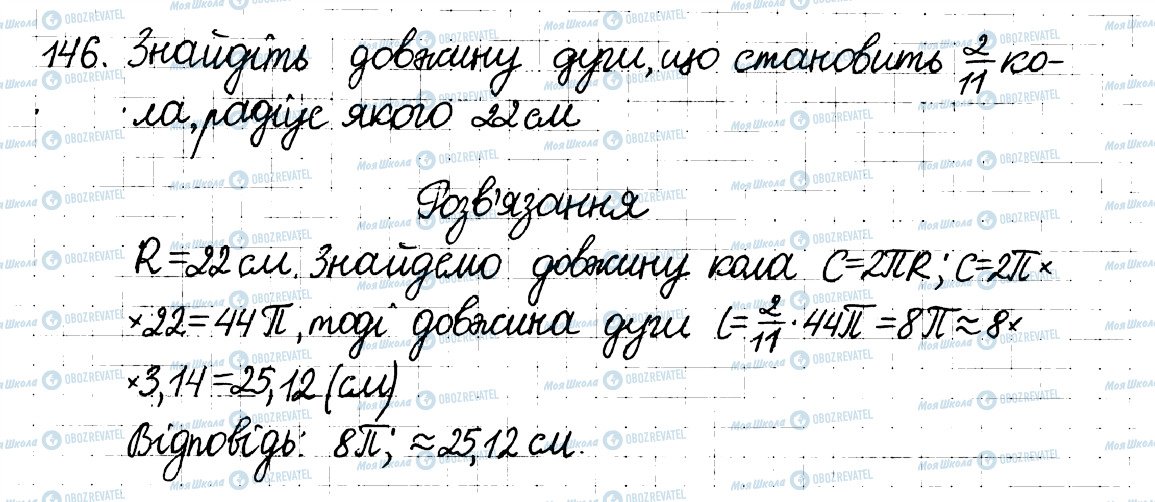 146. Знайдіть довжину дуги, що становить 2/11 ко-
ла, радіус якого 22 см
Розв'язання
R=22 см. Знайдемо довжину кола C=2πR; C=2π×
×22=44π, тоді довжина дуги l=2/11·44π=8π≈8×
×3,14=25,12 (см)
Відповідь: 8π; ≈25,12 см.